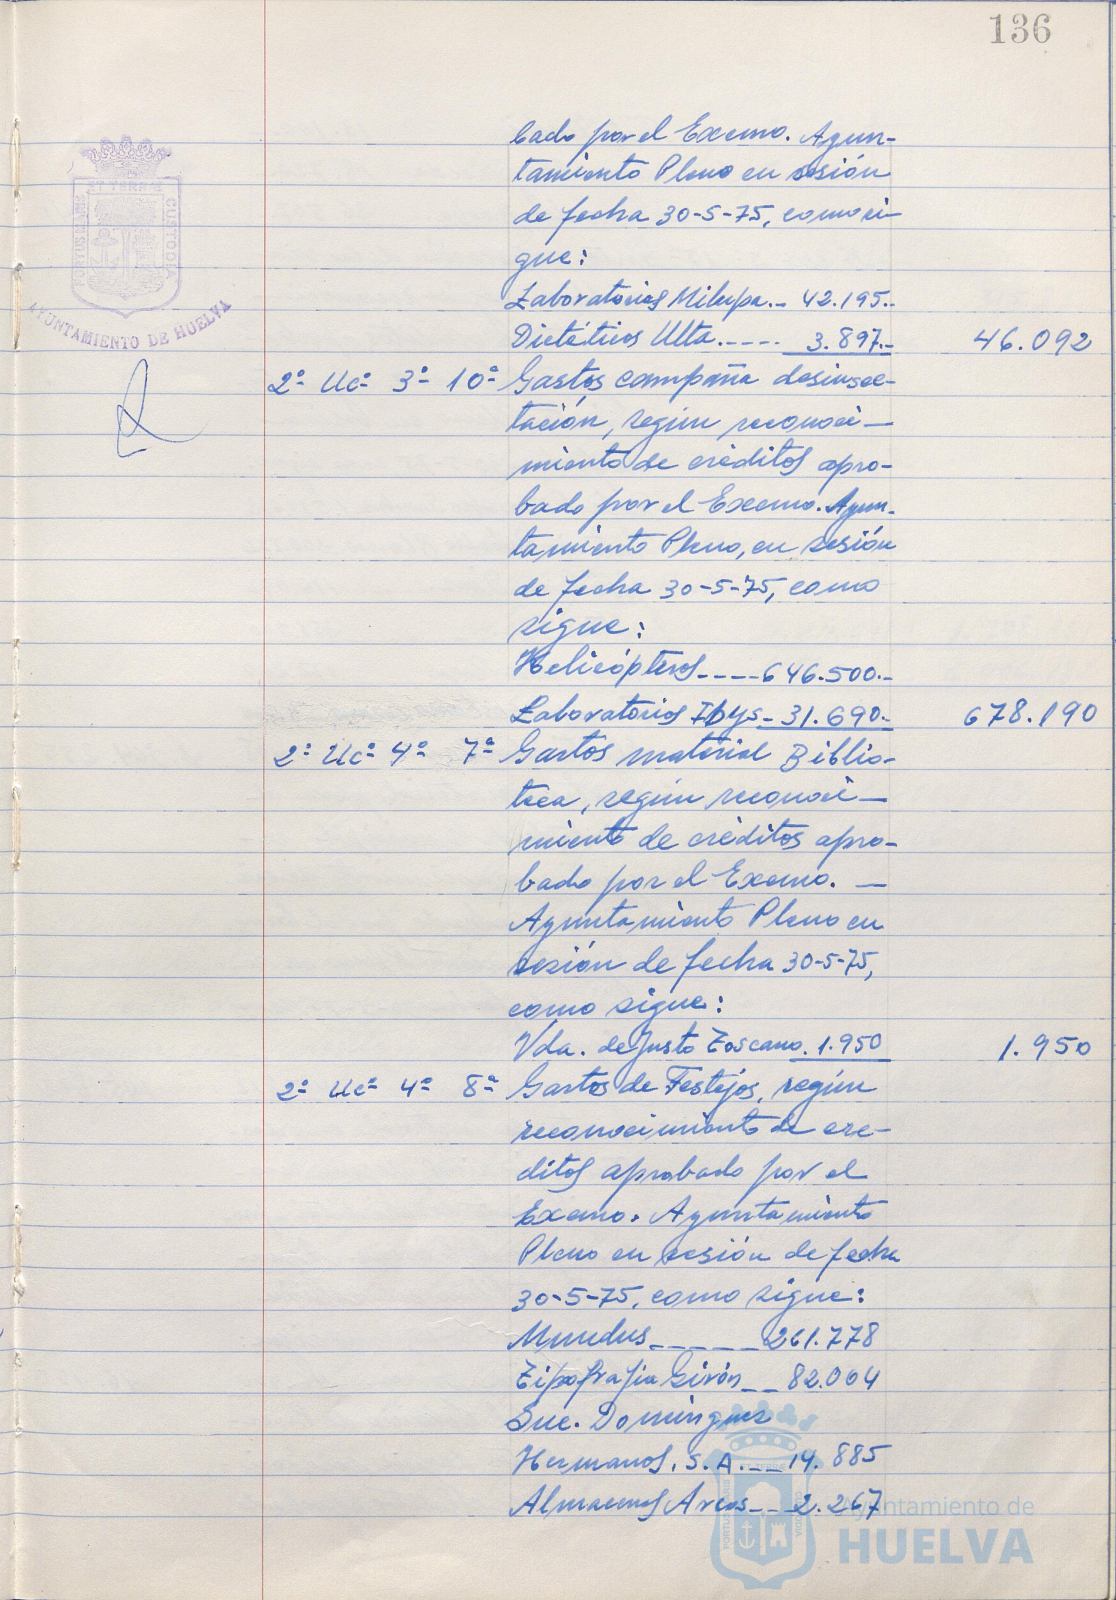 136
bado por el Excmo. Ayun-
tamiento Pleno en sesión
de fecha 30-5-75, como si-
gue:
Laboratorios Milupa.- 42.195.-
Dietéticos Ulta.---- 3.897.- 46.092
2º Ucº 3º 10º Gastos campaña desinsec-
tación, según reconoci-
miento de créditos apro-
bado por el Excmo. Ayun-
tamiento Pleno, en sesión
de fecha 30-5-75, como
sigue:
Helicópteros----646.500.-
Laboratorios Ibys- 31.690.- 678.190
2º Ucº 4º 7º Gastos material Biblio-
teca, según reconoci-
miento de créditos apro-
bado por el Excmo. -
Ayuntamiento Pleno en
sesión de fecha 30-5-75,
como sigue:
Vda. de Justo Toscano. 1.950 1.950
2º Ucº 4º 8º Gastos de Festejos, según
reconocimiento de cré-
ditos aprobado por el
Excmo. Ayuntamiento
Pleno en sesión de fecha
30-5-75, como sigue:
Mundus_____261.778
Tipografía Girón__82.004
Suc. Domínguez
Hermanos, S.A.__14.885
Almacenes Arcos__2.267
PORTUS MARIS ET TERRE CUSTODIA
AYUNTAMIENTO DE HUELVA
Ayuntamiento de
HUELVA